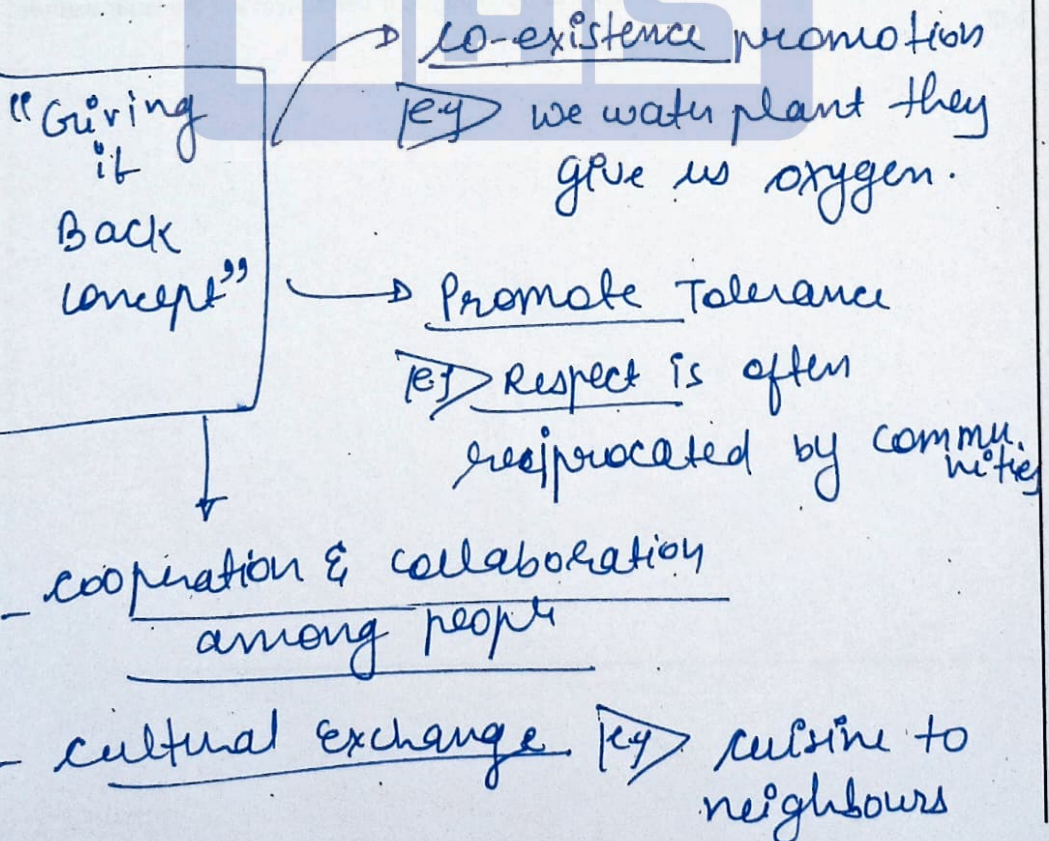 "Giving
it
Back
concept"
co-existence promotion
eg we water plant they
give us oxygen.
Promote Tolerance
eg Respect is often
reciprocated by commu.
nities
- cooperation & collaboration
among people
- cultural Exchange eg cuisine to
neighbours